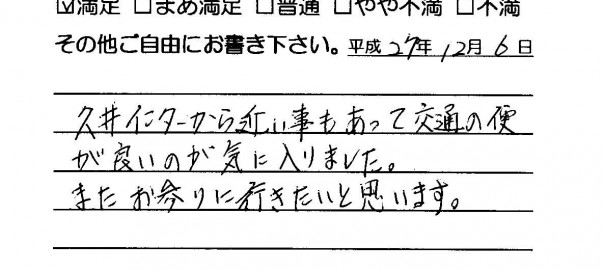 ☑満足 □まあ満足 □普通 □やや不満 □不満
その他ご自由にお書き下さい。平成27年12月6日
久井インターから近い事もあって交通の便
が良いのが気に入りました。
またお参りに行きたいと思います。